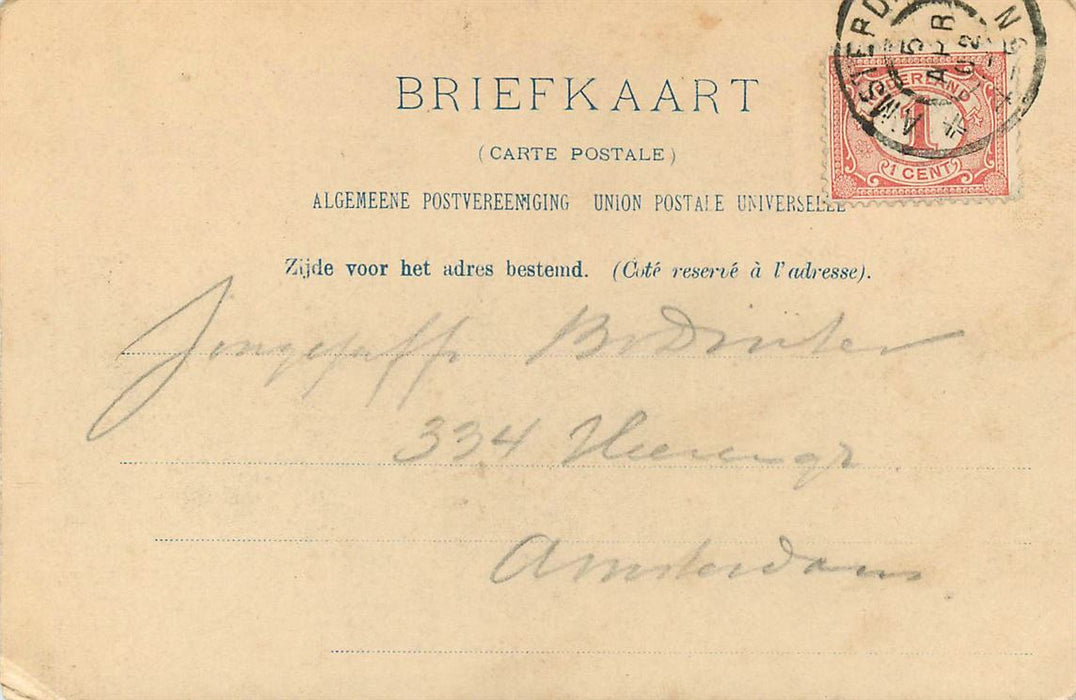 BRIEFKAART
(CARTE POSTALE)
ALGEMEENE POSTVEREENIGING UNION POSTALE UNIVERSELLE
Zijde voor het adres bestemd. (Coté reservé à l'adresse).
AMSTERD
5 APR 02
NEDERLAND
1
1 CENT
334 Heerengr
Amsterdam